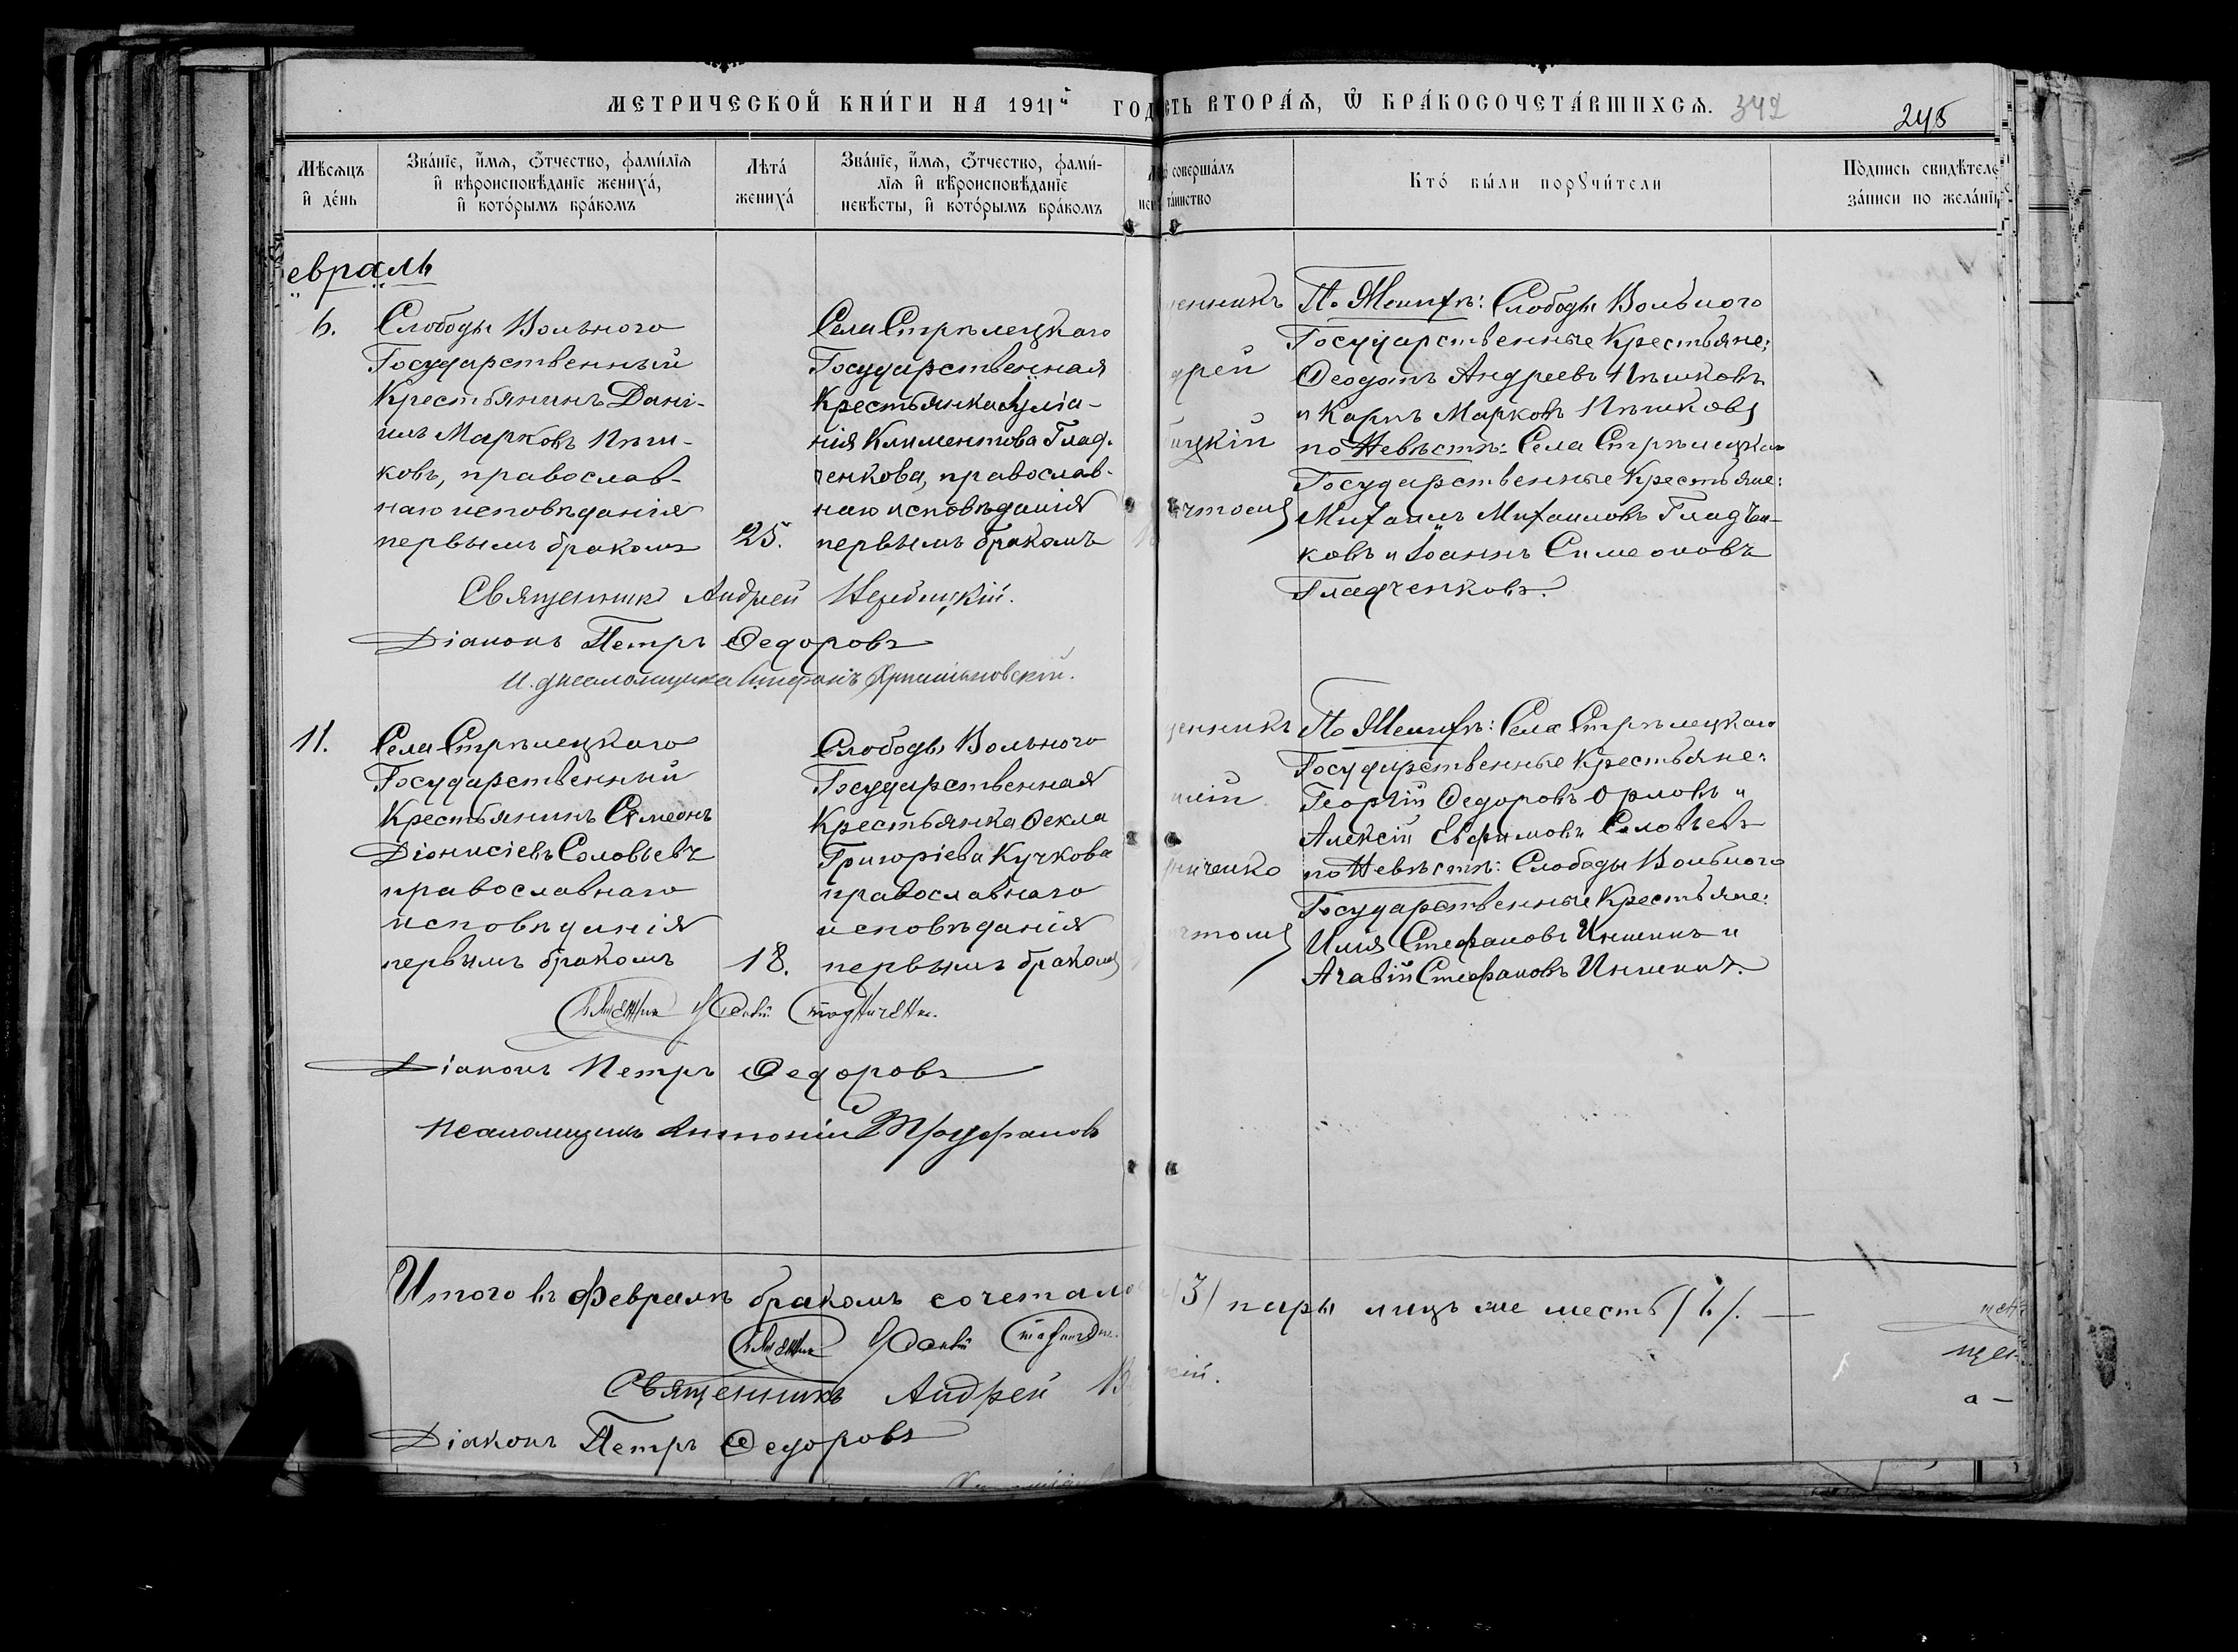 МЕТРИЧЕСКОЙ КНИ́ГИ НА 1911й ГОД
СТЬ ВТОРА́Ѧ, Ѿ БРА́КОСОЧЕТА́ВШИХСѦ. 342
245
Мѣсѧцъ
и҆ де́нь
Зва́нїе, и҆́мѧ, ѻ҆́тчество, фами́лїѧ
и҆ вѣроисповѣ́данїе жениха́,
и҆ кото́рымъ бра́комъ
Лѣта́
жениха́
Зва́нїе, и҆́мѧ, ѻ҆́тчество, фами́-
лїѧ и҆ вѣроисповѣ́данїе
невѣ́сты, и҆ кото́рымъ бра́комъ
соверша́лъ
та́инство
Кто́ бы́ли порꙋчи́тели
По́дпись свидѣ́теле
за́писи по жела́нїю
евраль
6.
Слободы Вольного
Государственный
Крестьянинъ Дані-
илъ Марковъ Пѣш-
ковъ, православ-
наго исповѣданія
первымъ бракомъ
25.
Села Стрѣлецкаго
Государственная
Крестьянка Іуліа-
нія Климентова Глад-
ченкова, православ-
наго исповѣданія
первымъ бракомъ
щенникъ
дрей
ицкій
ичтомъ
По Женихѣ: Слободы Вольного
Государственные Крестьяне:
Ѳеодотъ Андреевъ Пѣшковъ
и Карпъ Марковъ Пѣшковъ
по Невѣстѣ: Села Стрѣлецкаго
Государственные Крестьяне:
Михаилъ Михаиловъ Гладчен-
ковъ и Іоаннъ Симеоновъ
Гладченковъ.
Священникъ Андрей
Діаконъ Петръ Ѳедоровъ
И. д. псаломщика Стефанъ
11.
Села Стрѣлецкаго
Государственный
Крестьянинъ Симеонъ
Діонисіевъ Соловьевъ
православнаго
исповѣданія
первымъ бракомъ
18.
Слободы Вольного
Государственная
Крестьянка Ѳекла
Григоріева Кучкова
православнаго
исповѣданія
первымъ бракомъ
щенникъ
ниченко
ичтомъ
По Женихѣ: Села Стрѣлецкаго
Государственные Крестьяне:
Георгій Ѳедоровъ Орловъ и
Алексій Евфимовъ Соловьевъ
по Невѣстѣ: Слободы Вольного
Государственные Крестьяне:
Илія Стефановъ Иншинъ и
Агавій Стефановъ Иншинъ.
Діаконъ Петръ Ѳедоровъ
Псаломщикъ Антоній Труфановъ
Итого въ Февралѣ бракомъ сочетало /3/ пары лицъ же шесть /6/. —
Священникъ Андрей
кій.
Діаконъ Петръ Ѳедоровъ